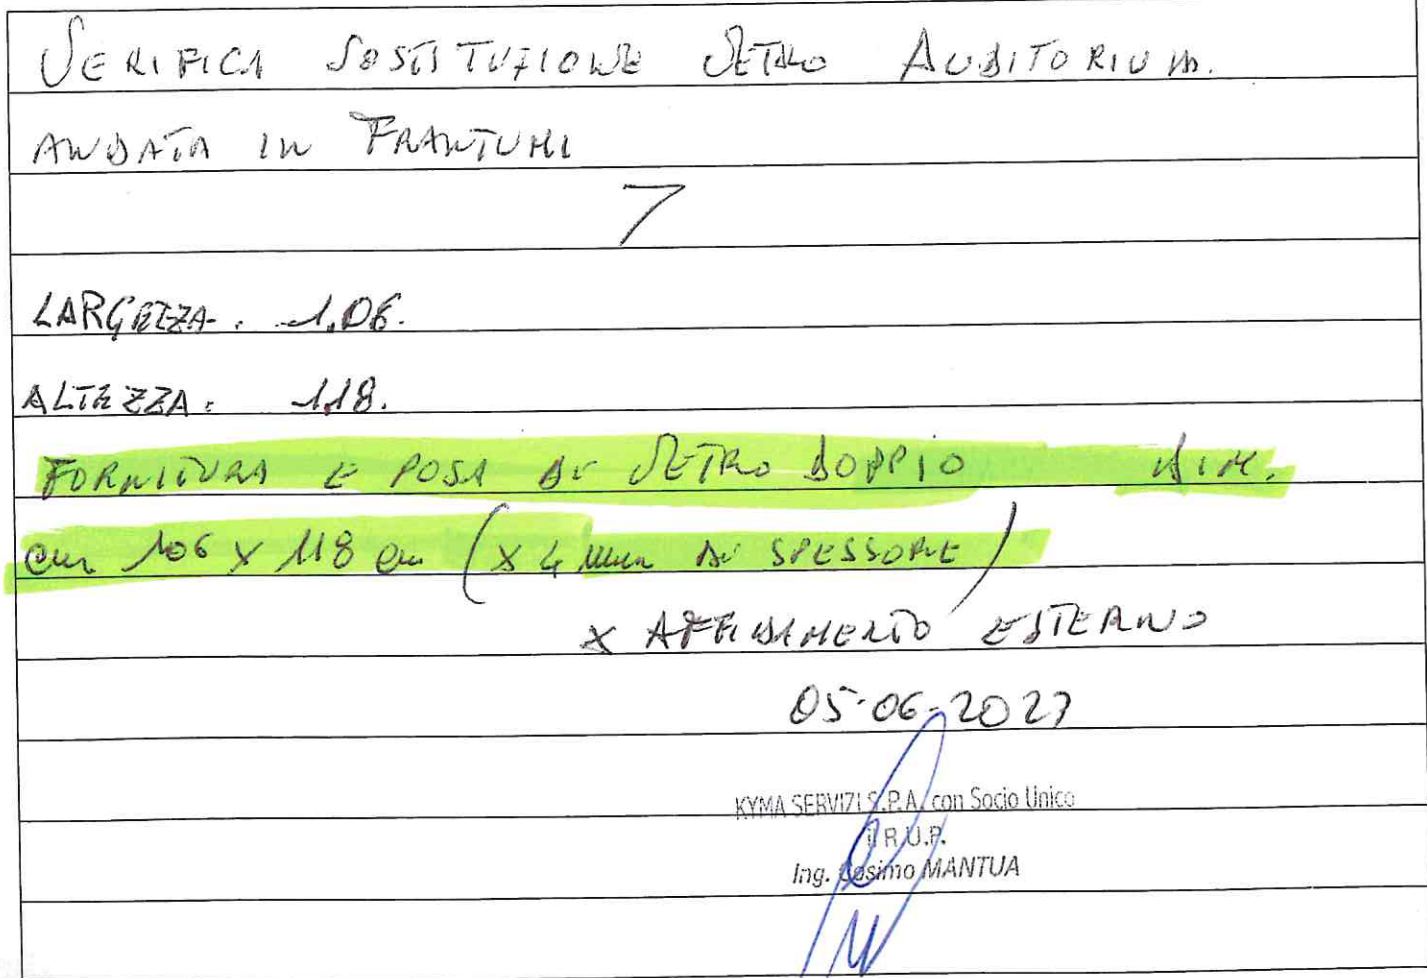 VERIFICA SOSTITUZIONE VETRO AUDITORIUM.
ANDATA IN FRANTUMI
LARGHEZZA: 1,06.
ALTEZZA: 1,18.
FORNITURA E POSA DI VETRO DOPPIO DIM.
cm 106 x 118 cm (x 4 mm DI SPESSORE)
x AFFIDAMENTO ESTERNO
05-06-2023
KYMA SERVIZI S.P.A. con Socio Unico
il R.U.P.
Ing. Cosimo MANTUA